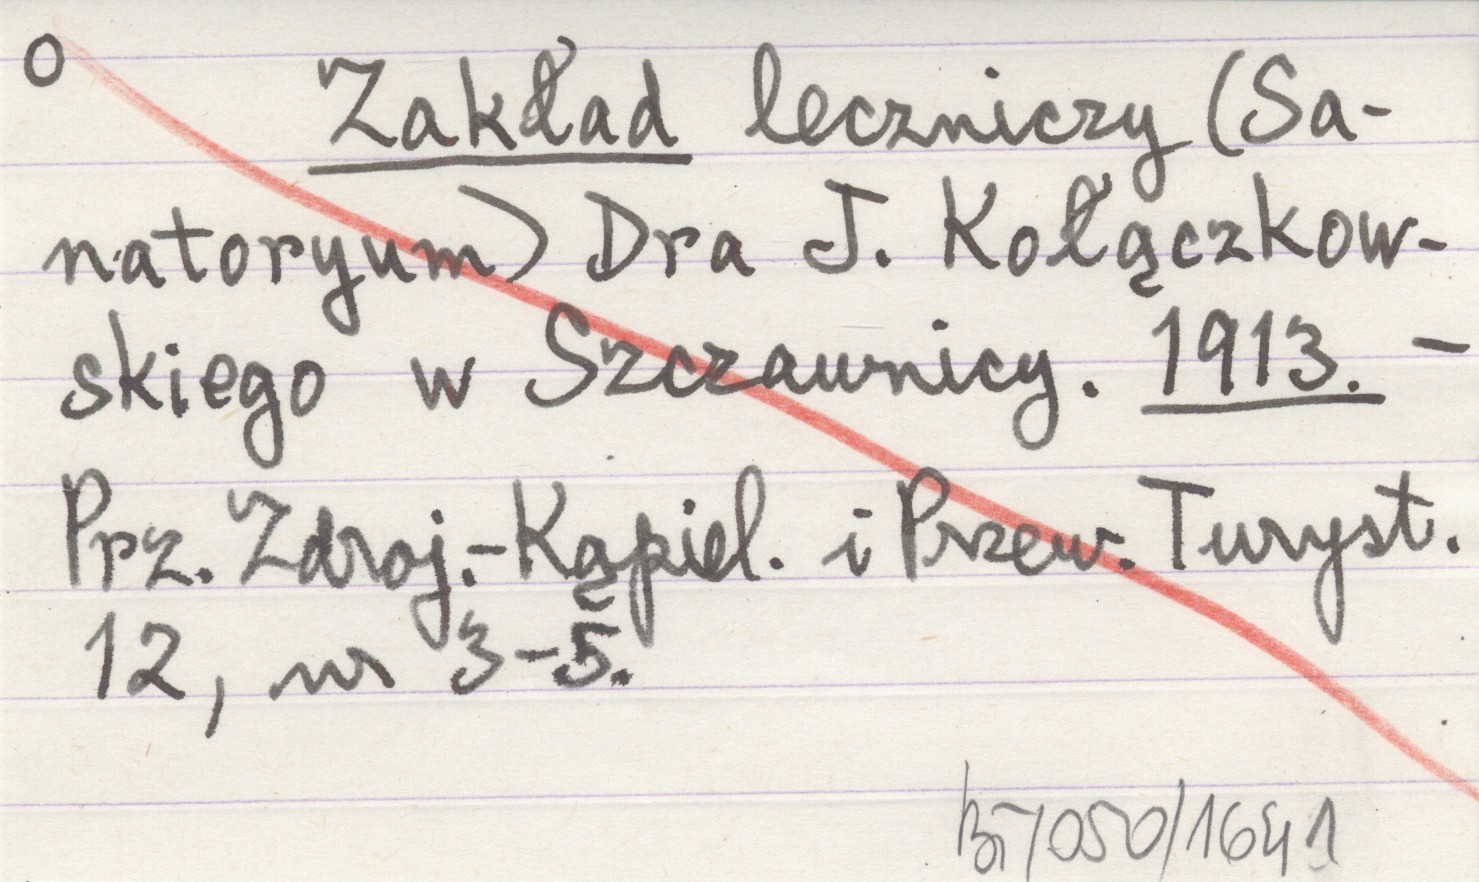 O Zakład leczniczy (Sa-
natoryum) Dra J. Kołączkow-
skiego w Szczawnicy. 1913. -
Prz. Zdroj.-Kąpiel. i Przew. Turyst.
12, nr 3-5.